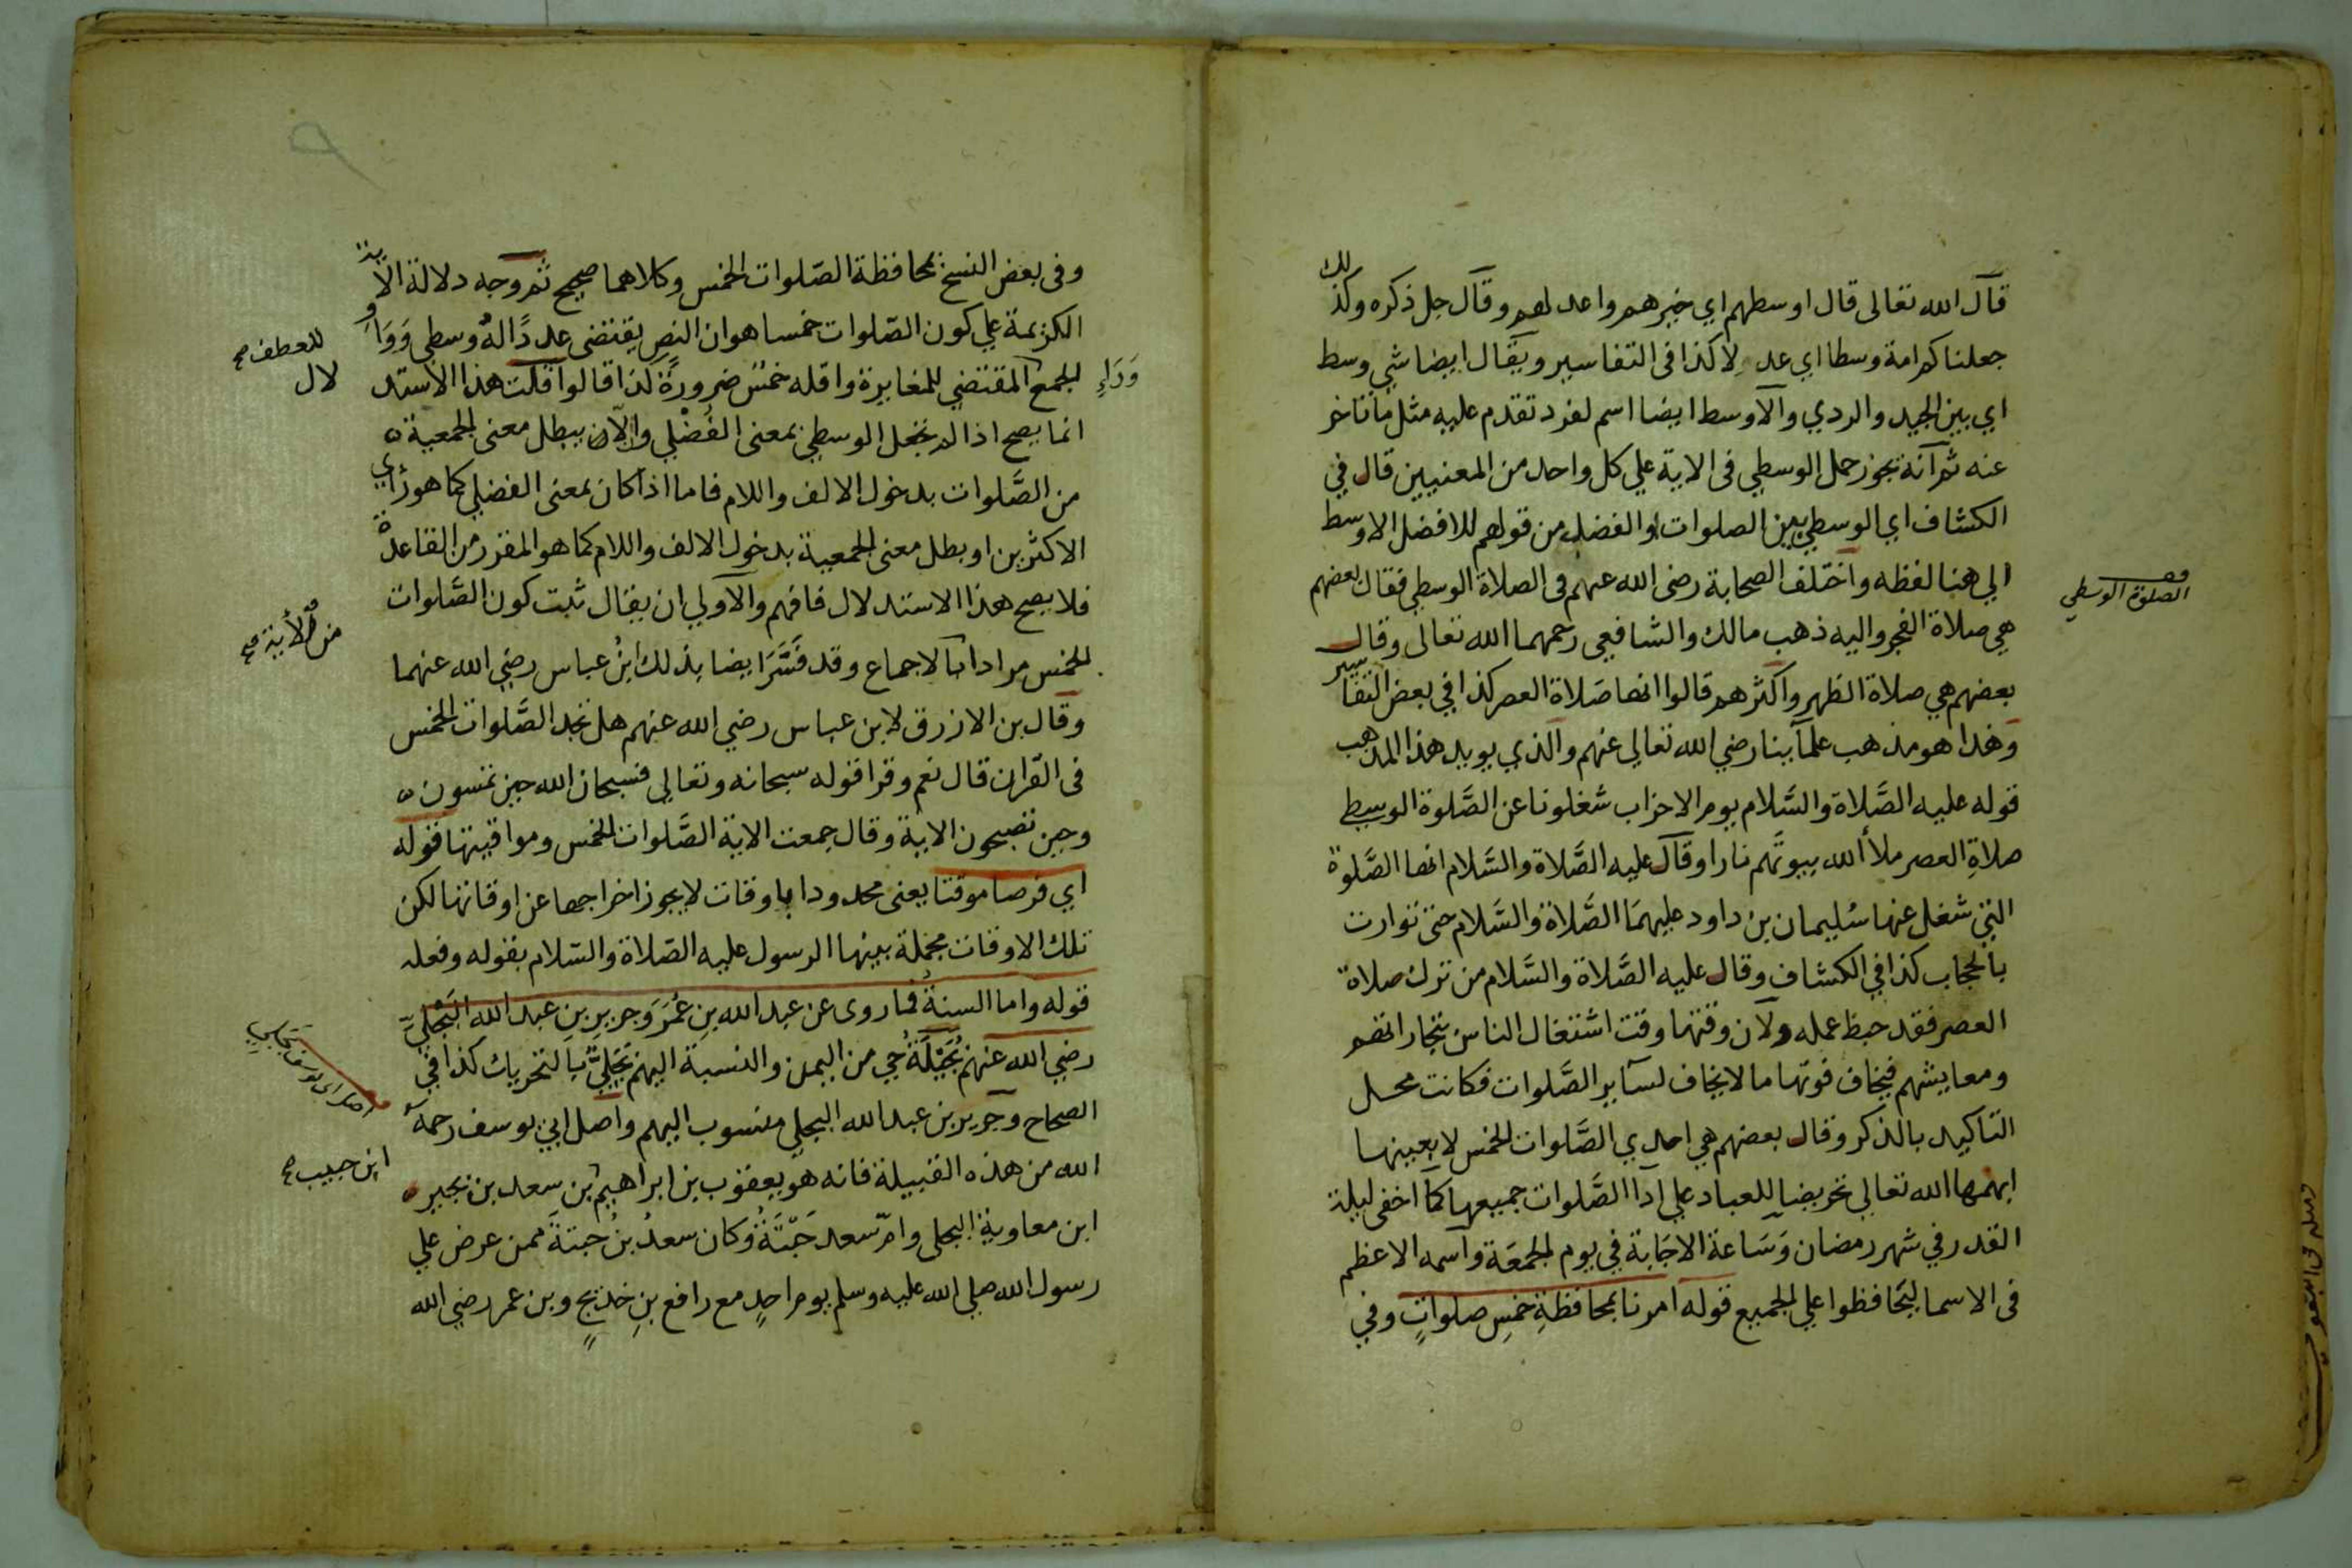 قال الله تعالى قال اوسطهم اي خيرهم واعدلهم وقال جل ذكره وكذلك
جعلناكم امة وسطا اي عدلا كذا فى التفاسير ويقال ايضا شي وسط
اي بين الجيد والردي والاوسط ايضا اسم لفرد تقدم عليه مثل ما تاخر
عنه ثم انه يجوز حمل الوسطي فى الاية علي كل واحد من المعنيين قال في
الكشاف اي الوسطي بين الصلوات او الفضلي من قولهم للافضل الاوسط
الي هنا لفظه واختلف الصحابة رضى الله عنهم فى الصلاة الوسطي فقال بعضهم
هي صلاة الفجر واليه ذهب مالك والشافعي رحمهما الله تعالى وقال
بعضهم هي صلاة الظهر واكثرهم قالوا انها صَلاة العصر كذا في بعض التفاسير
وهذا هو مذهب علماَينا رضي الله تعالي عنهم والذي يويد هذا المذهب
قوله عليه الصَّلاة والسَّلام يوم الاحزاب شغلونا عن الصَّلوة الوسطي
صلاةِ العصر ملأ الله بيوتَهم نارا وقال عليه الصَّلاة والسَّلام انها الصَّلوة
التي شغل عنها سُليمان بن داود عليهمَا الصَّلاة والسَّلام حتى توارت
بالحجاب كذا في الكشاف وقال عليه الصَّلاة والسَّلام من ترك صلاة
العصر فقد حبط عمله ولان وقتها وقت اشتغال الناس بتجاراتهم
ومعايشهم فيخاف فوتها ما لا يخاف لساير الصَّلوات فكانت محل
التاكيد بالذكر وقال بعضهم هي احدي الصَّلوات الخمس لا بعينها
ابهمها الله تعالي تحريضا للعباد علي ادا الصَّلوات جميعها كما اخفى ليلة
القدر في شهر رمضان وَسَاعة الاجَابة في يوم الجمعَة واسمه الاعظم
فى الاسما ليَحافظوا علي الجميع قوله امرنا بمحافظةِ خمسِ صلواتٍ وفي
الصلوة الوسطي
وفى بعض النسخ بمحافظة الصّلوات الخمس وكلاهما صحيح ثم وجه دلالة الاية
الكريمة علي كون الصّلوات خمسا هو ان النص يقتضى عددًا لهُ وسطي وَوَاوِ
الجمع المقتضي للمغايرة واقله خمسُ ضرورةً كذا قالوا قلت هذا الاستد
لال
للعطف صح
وَرَاءِ
انما يصح اذا لم نجعل الوسطي بمعنى الفُضْلي والّا يبطل معنى الجمعية
من الصَّلوات بدخول الالف واللام فاما اذا كان بمعنى الفضلي كما هو رَأي
الاكثرين او بطل معنى الجمعية بدخول الالف واللام كما هو المقرر من القاعدة
فلا يصح هذا الاستدلال فافهم والاولي ان يقال ثبت كون الصَّلوات
الخمس مرادا بالاجماع وقد فَسَّرَ ايضا بذلك ابنُ عباس رضي الله عنهما
من الأية صح
وقال بن الازرق لابن عباس رضي الله عنهم هل تجد الصَّلوات الخمس
فى القران قال نعم وقرا قوله سبحانه وتعالي فسبحان الله حين تمسون
وحين تصبحون الاية وقال جمعت الاية الصَّلوات الخمس ومواقيتها قوله
اي فرضا موقتا يعنى محدودا باوقات لا يجوز اخراجها عن اوقاتها لكن
تلك الاوقات مجملة بينها الرسول عليه الصّلاة والسّلام بقوله وفعله
قوله واما السنةُ فما روى عن عبد الله بنِ عُمَرَ وَجريرِ بنِ عبد الله البَجَليّ
رضي الله عنهم بَجَيْلَةُ حي من اليمن والنسبة اليهم بَجَليٌّ بالتحريك كذا في
الصحاح وجرير بن عبد الله البجلي منسوب اليهم واصل ابي يوسف رحمه
الله من هذه القبيلة فانه هو يعقوب بن ابراهيم بن سعد بن بجير
ابن حبيب صح
ابن معاوية البجلى وامّ سعد حَبْتَةُ وكان سعدُ بنُ حبتةَ ممن عرض علي
رسول الله صلي الله عليه وسلم يوم احدٍ مع رافع بنِ خديجٍ وبن عمر رضي الله